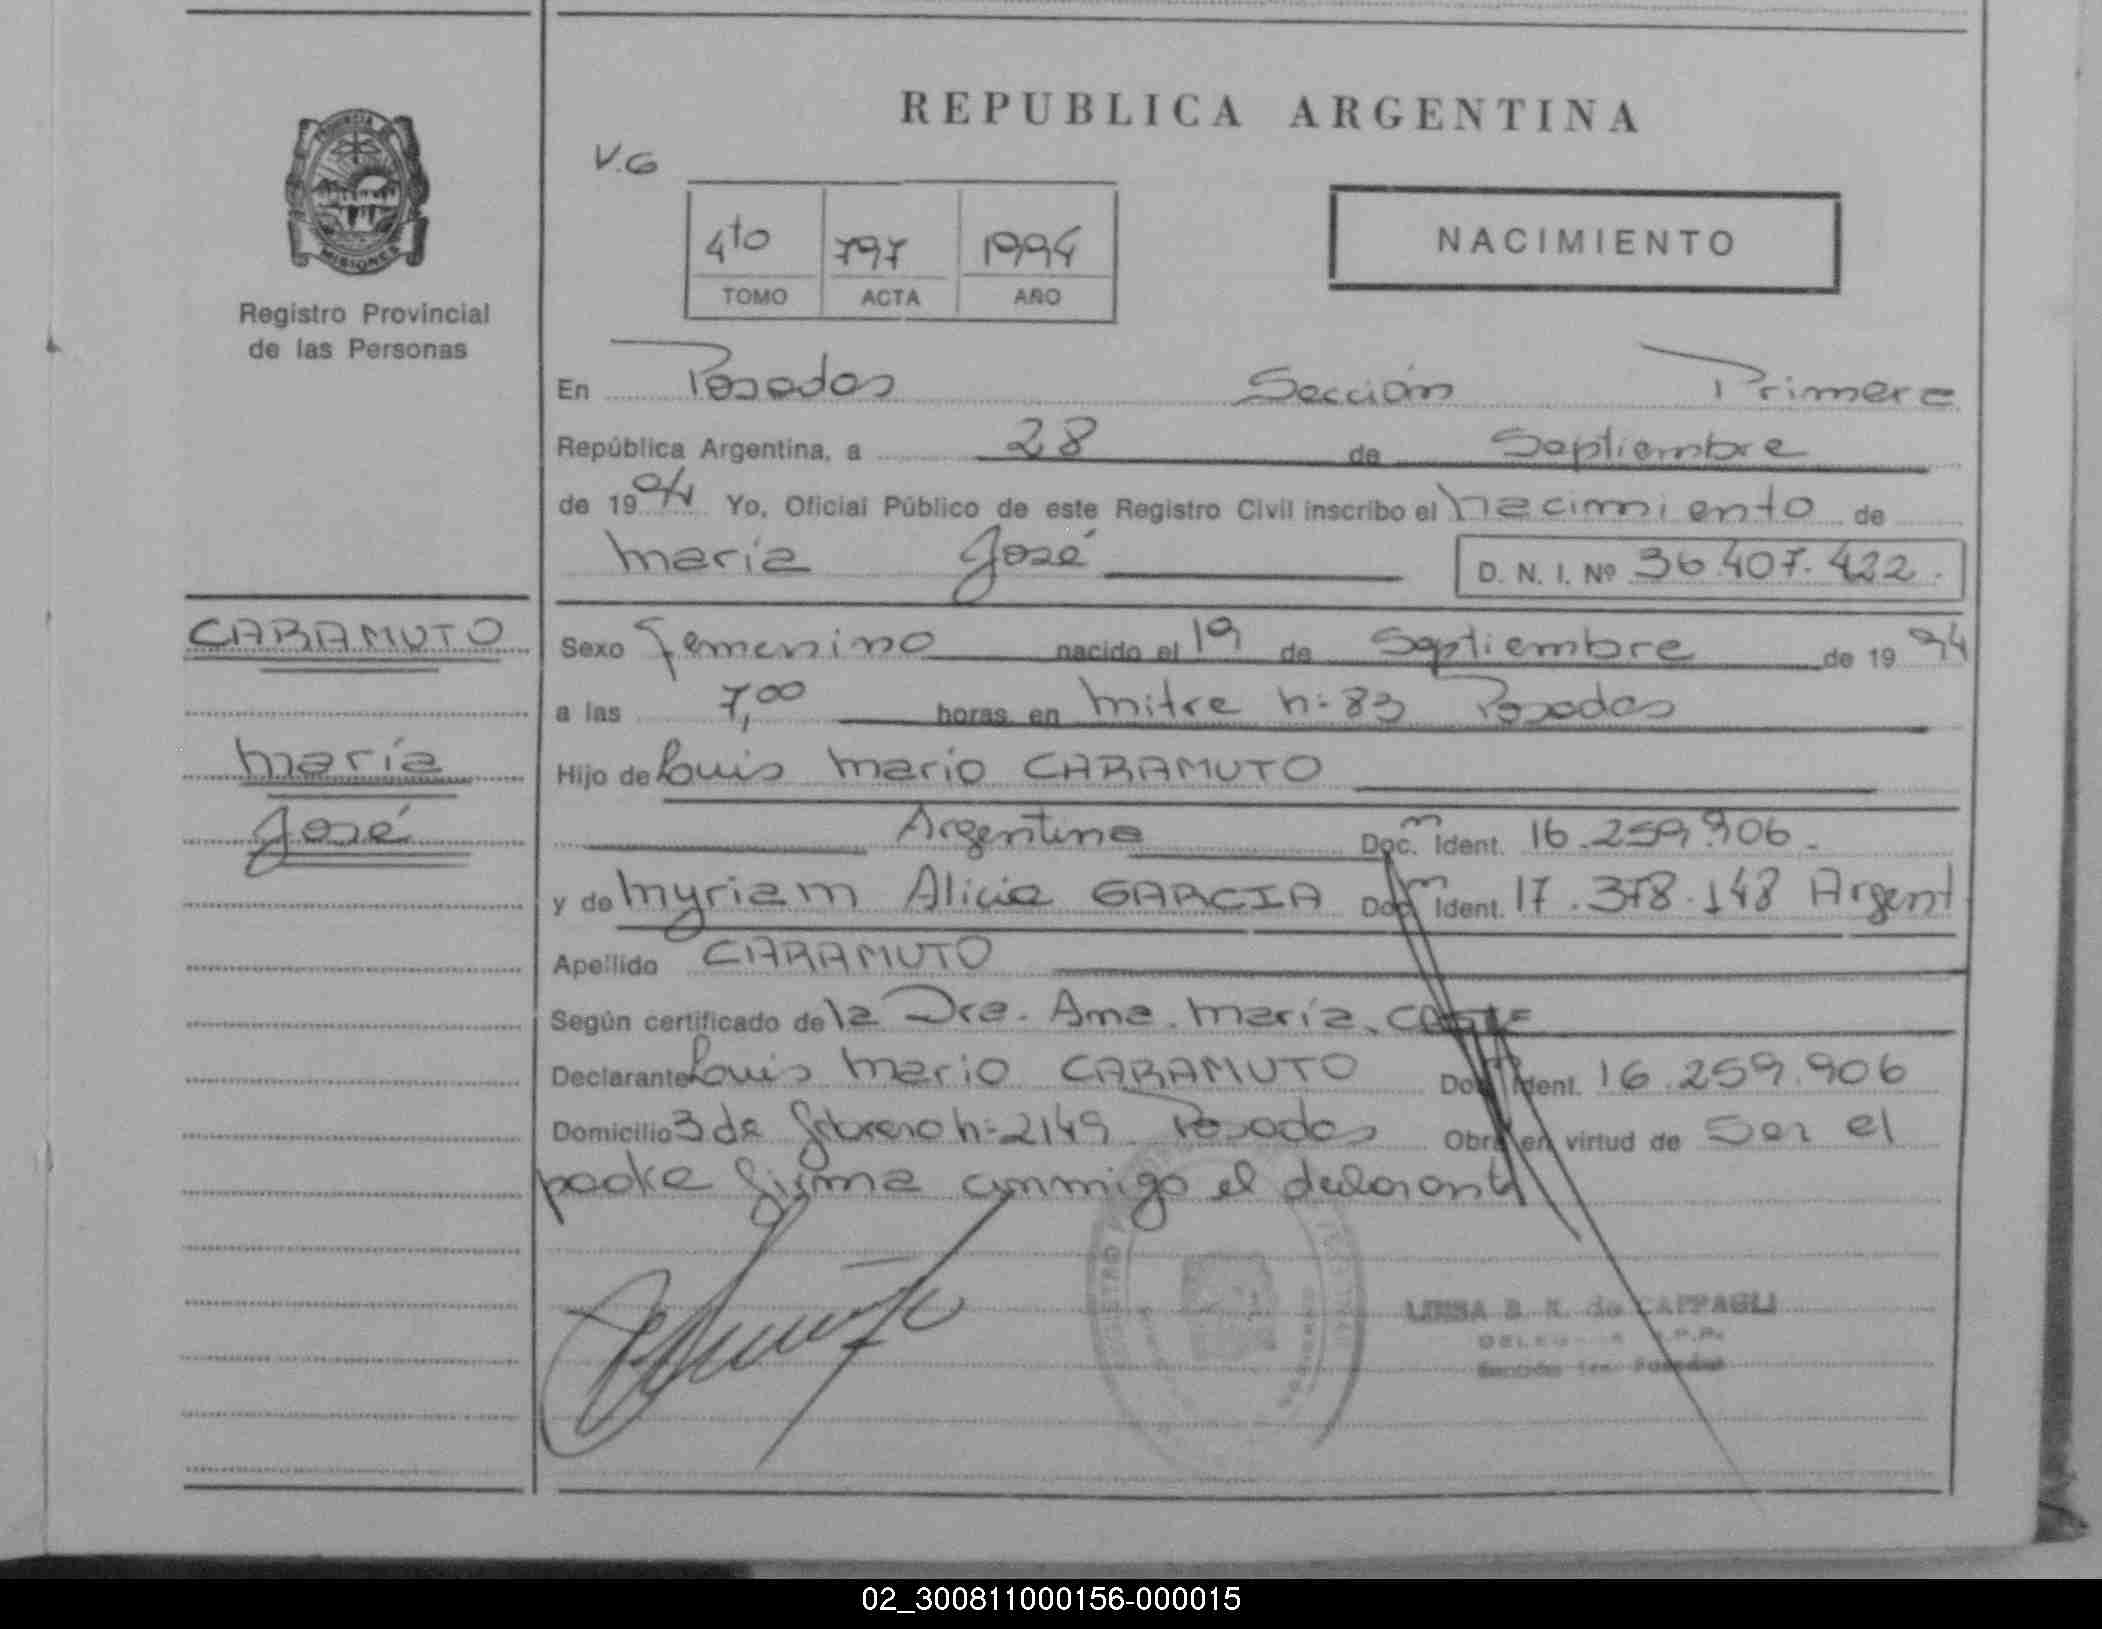 REPUBLICA ARGENTINA
V.G
4to 797 1994
TOMO ACTA AÑO
NACIMIENTO
PROVINCIA DE
MISIONES
Registro Provincial
de las Personas
En Posadas Sección Primera
República Argentina, a 28 de Septiembre
de 1994 Yo, Oficial Público de este Registro Civil inscribo el nacimiento de
María José D. N. I. Nº 36.407.422.
CARAMUTO
María
José
Sexo Femenino nacido el 19 de Septiembre de 1994
a las 7,00 horas en Mitre n: 83 Posadas
Hijo de Luis Mario CARAMUTO
Argentina Doc. m Ident. 16.259.906.
y de Myriam Alicia GARCIA Doc. m Ident. 17.378.148 Argent
Apellido CARAMUTO
Según certificado de la Dra. Ana María
Declarante Luis Mario CARAMUTO Doc. Ident. 16.259.906
Domicilio 3 de febrero n: 2149 Posadas Obra en virtud de Ser el
padre firma conmigo el declarante
REGISTRO
LUISA B. K. de CAPPAGLI
Sección 1ra. Posadas
02_300811000156-000015